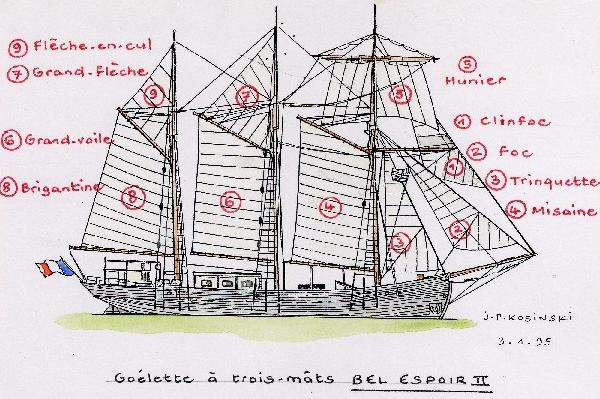 9 Flèche-en-cul
7 Grand-Flèche
6 Grand-voile
8 Brigantine
5 Hunier
1 Clinfoc
2 Foc
3 Trinquette
4 Misaine
9
7
5
8
6
4
1
2
3
J.P. KOSINSKI
3.1.95
Goélette à trois-mâts BEL ESPOIR II